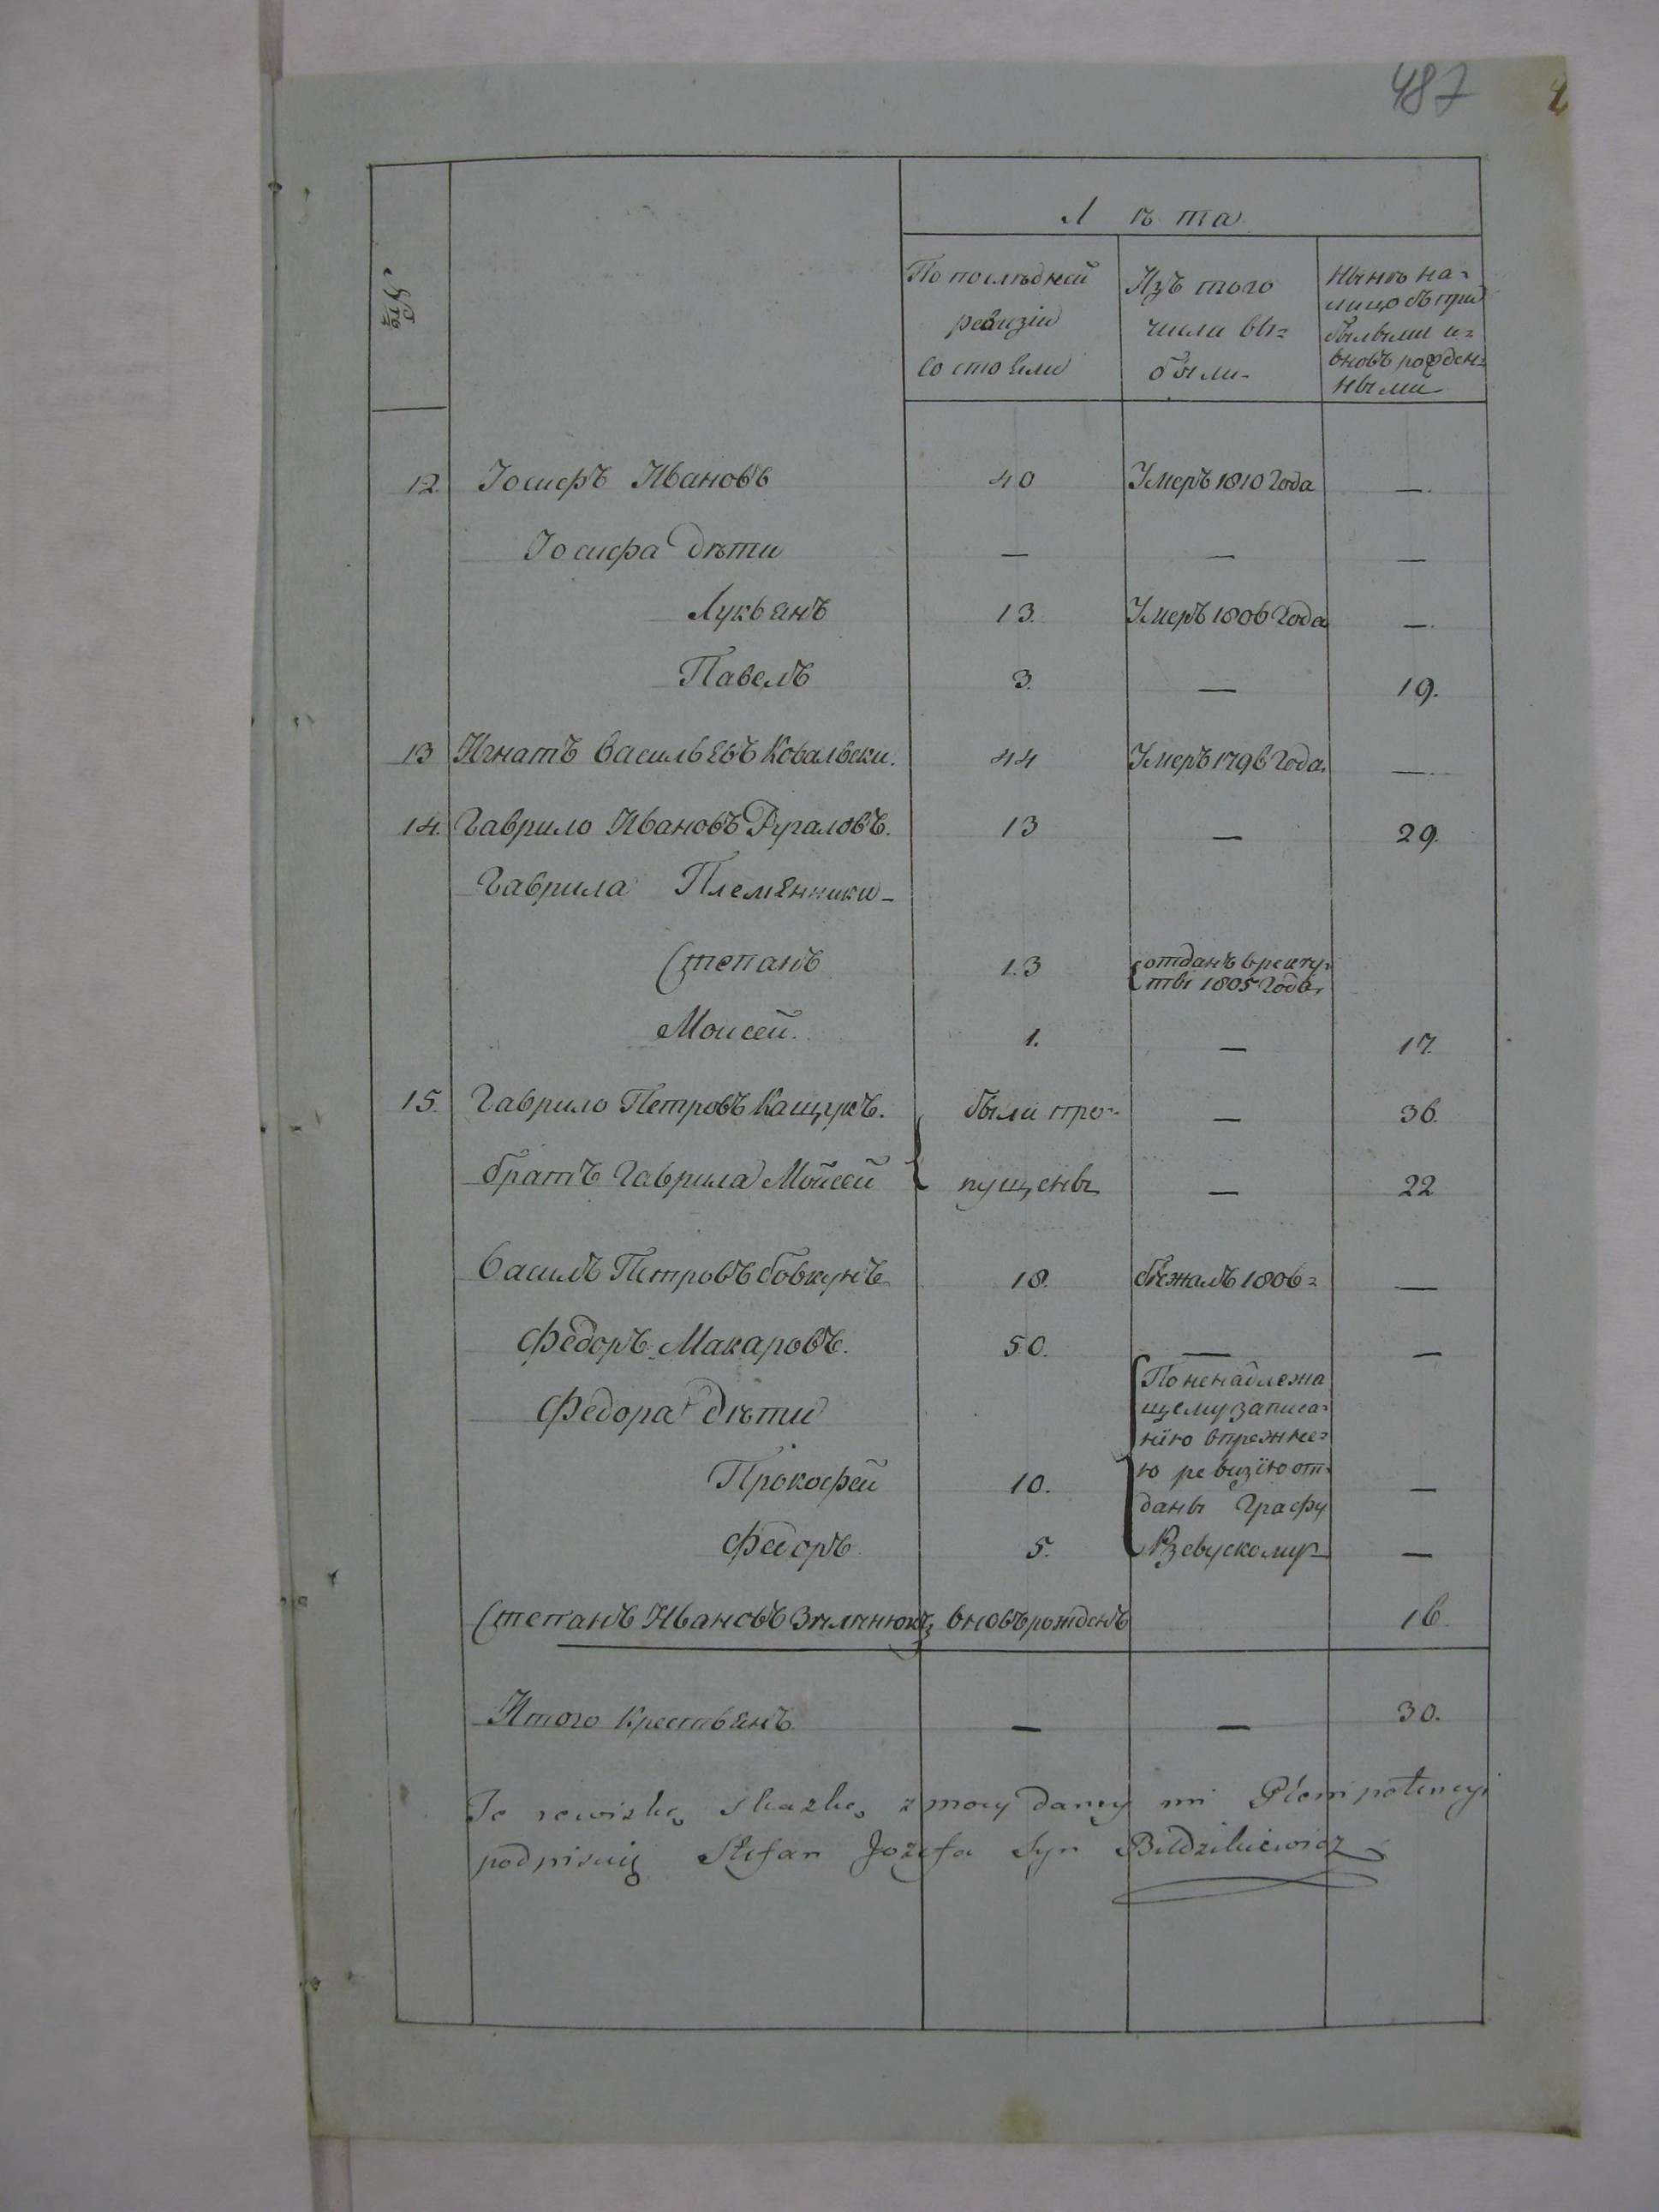 487
Лѣта
№
По послѣдней
ревизіи
состояли
Изъ того
числа вы=
были
Нынѣ на=
лицо съ при
былыми и=
вновь рожден=
ными
12. Іосифъ Ивановъ 40 Умеръ 1810 Года —
Іосифа дѣти — — —
Лукьянъ 13. Умеръ 1806 Года —
Павелъ 3. — 19.
13 Игнатъ Васильевъ Ковальски. 44 Умеръ 1796 Года. —
14. Гаврило Ивановъ 13 — 29.
Гаврила Племянники
Степанъ 13 отданъ врекру=
ты 1805 Года
Моисей. 1. — 17.
15. Гаврило Петровъ Кащукъ. были про= — 36.
братъ Гаврила Мойсей пущены — 22
Василъ Петровъ Бовкунъ 18. бѣжалъ 1806= —
Федоръ Макаровъ. 50. — —
Федора дѣти
По ненадлежа
щему записа=
нію впрежне=
ю ревизію от=
даны Графу
Ржевускому
Прокофей 10. —
Федоръ 5. —
Степанъ Ивановъ вновърожденъ 16.
Итого Крестьянъ — — 30.
Te rewiską skazkę z mocy daney mi Plenipotencyi
podpisuię Stefan Jozefa Syn